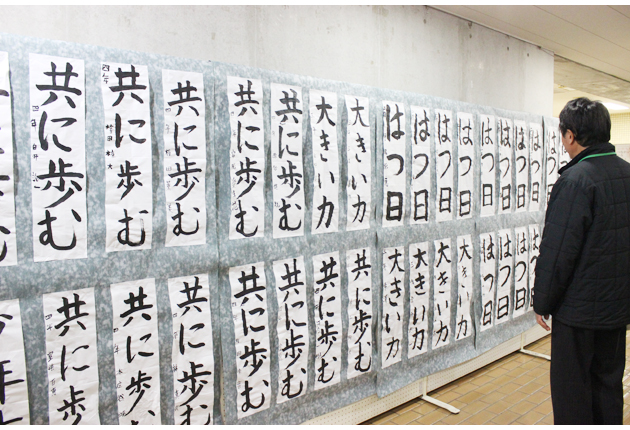 共に歩む
共に歩む
共に歩む
共に歩む
共に歩む
大きい力
大きい力
はつ日
はつ日
はつ日
はつ日
はつ日
はつ日
はつ日
はつ日
今年
共に歩
共に歩
共に歩む
共に歩む
共に歩む
共に歩む
共に歩む
大きい力
大きい力
大きい力
大きい力
はつ日
はつ日
はつ日
はつ日